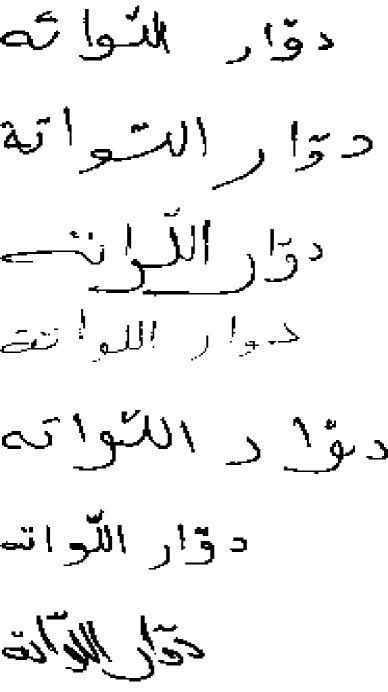 دوّار اللّواتة
دوّار اللّواتة
دوّار اللّواتة
دوار اللواتة
دوّار اللّواته
دوّار اللّواته
دوّار اللوّاتة